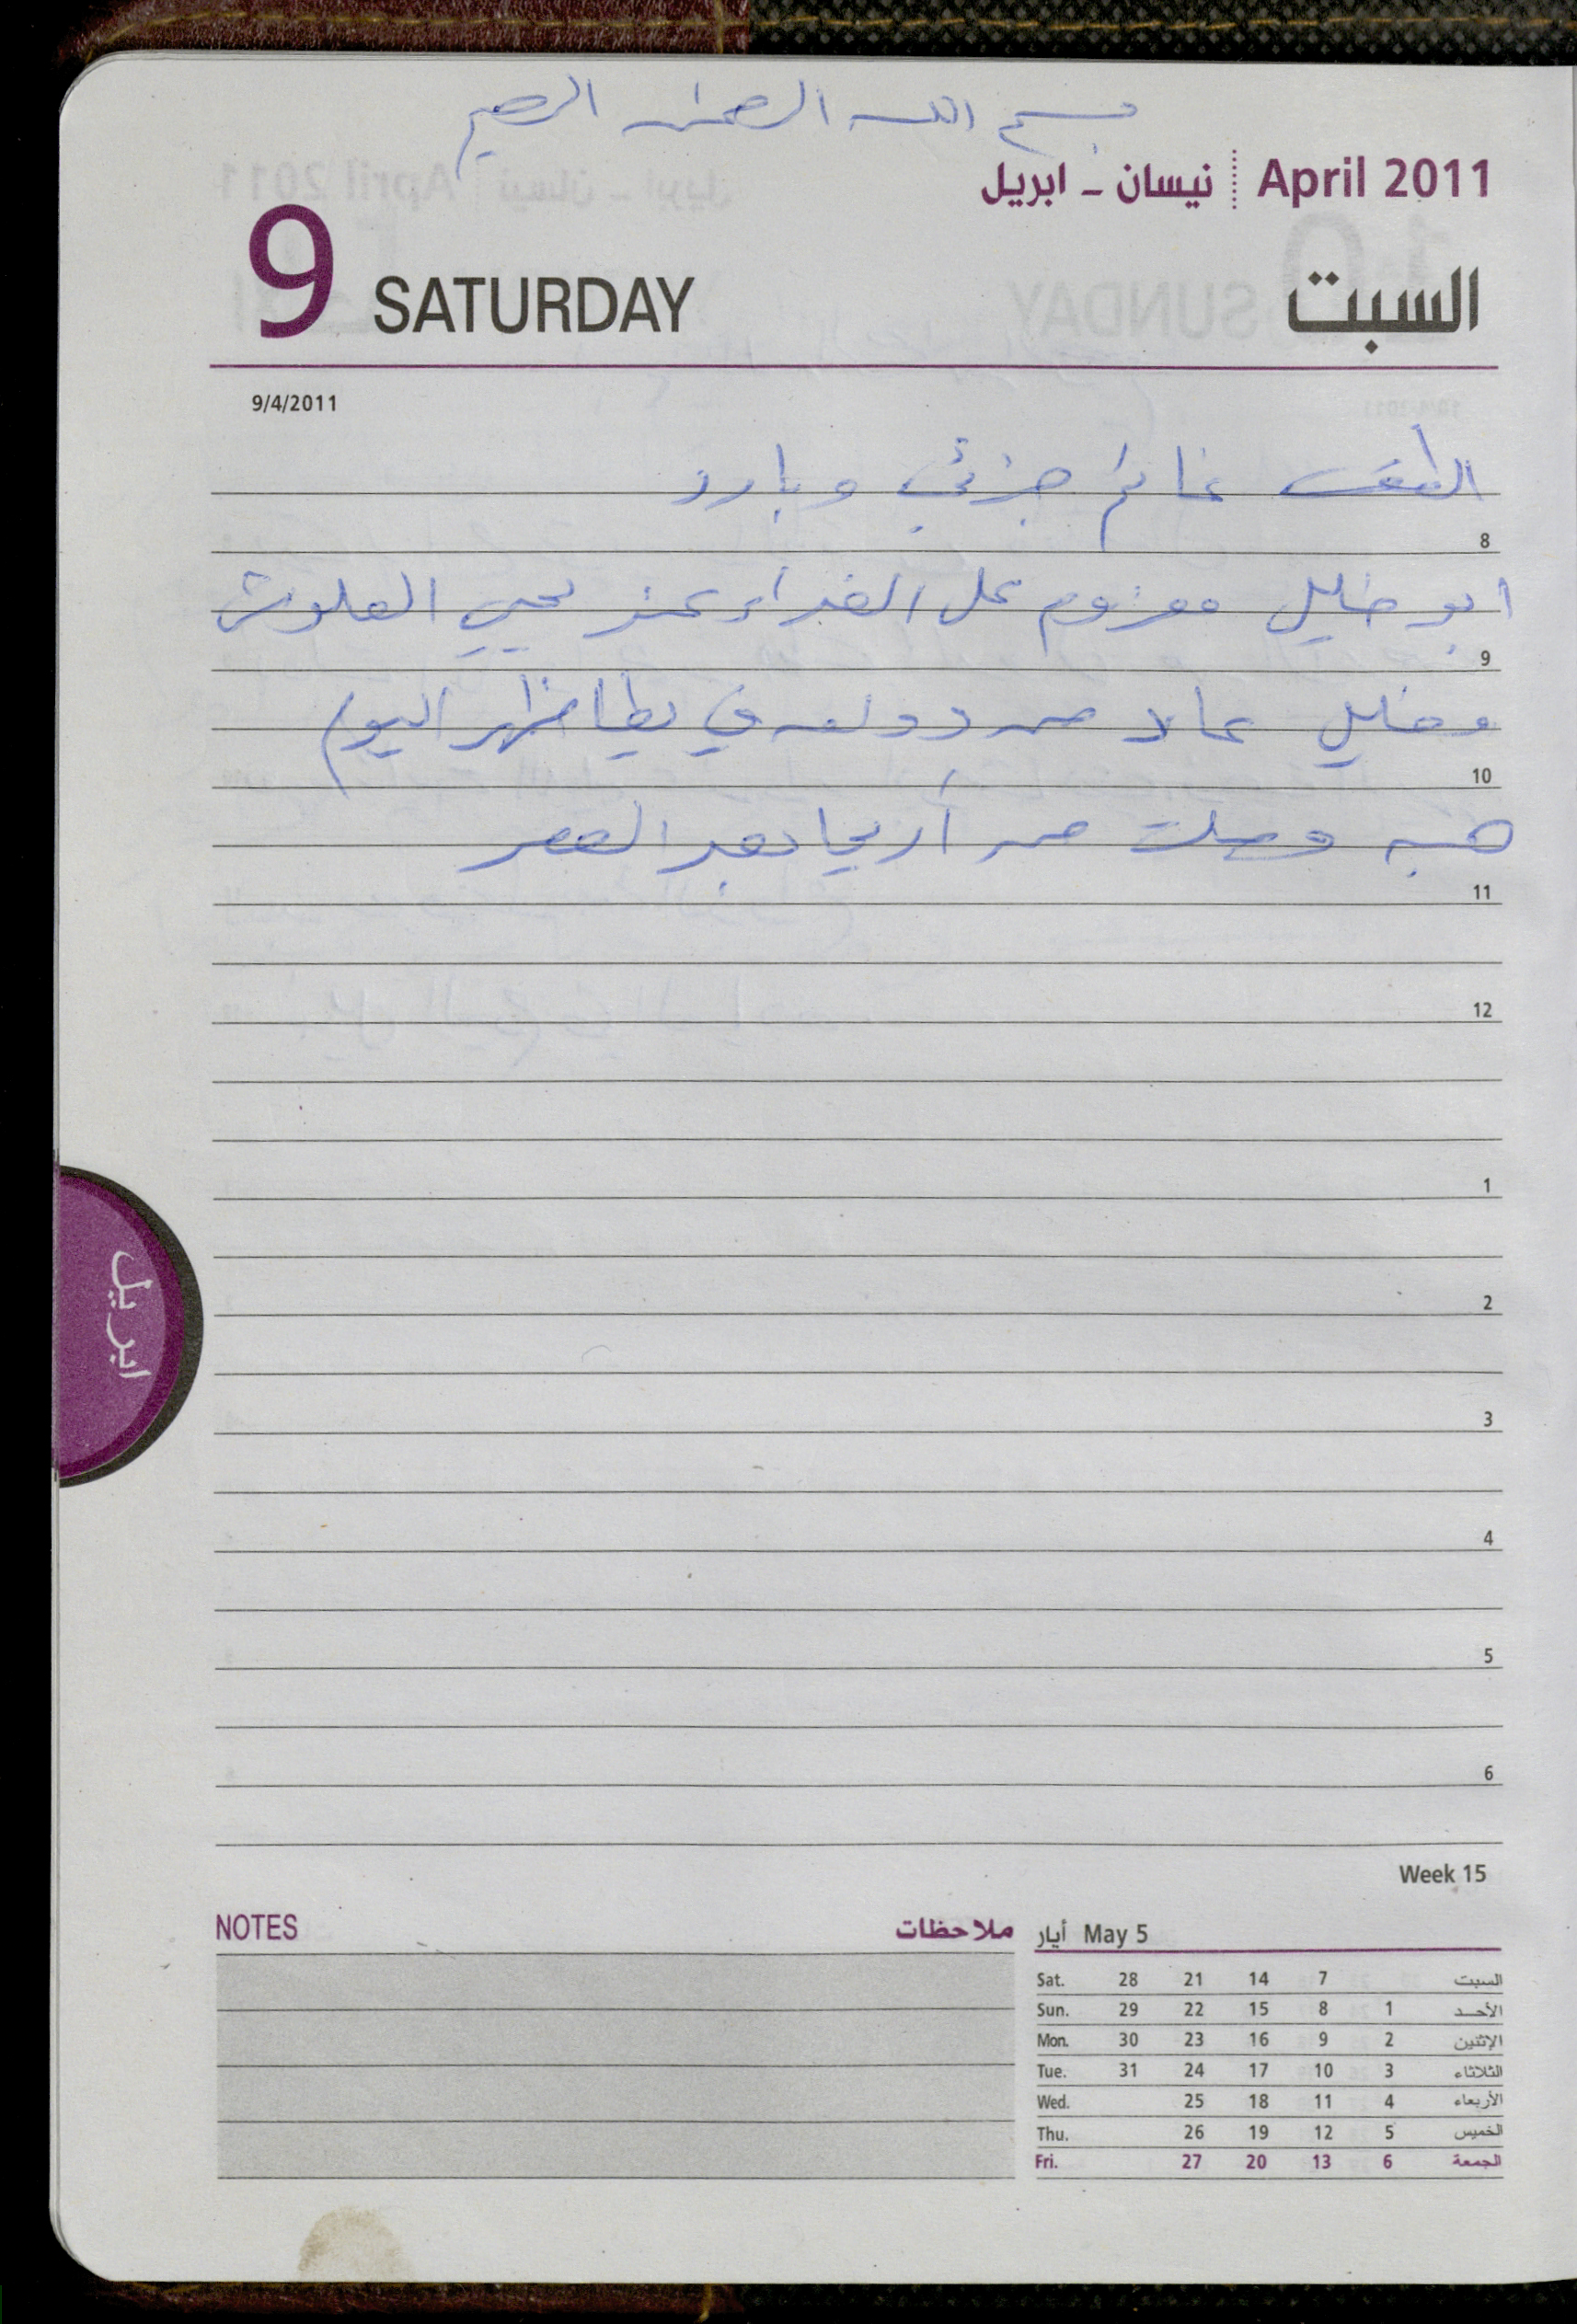 بسم الله الرحمن الرحيم
نيسان - ابريل April 2011
9 SATURDAY السبت
9/4/2011
الطقس غائم جزئي وبارد
8
ابو خليل معزوم على الغداء عند يحيى العلوش
9
وخليل عاد من دولته في يطا ظهر اليوم
10
هبه وصلت من أريحا بعد العصر
11
12
1
2
3
4
5
6
Week 15
ابريل
NOTES ملاحظات
أيار May 5
Sat. 28 21 14 7 السبت
Sun. 29 22 15 8 1 الأحد
Mon. 30 23 16 9 2 الإثنين
Tue. 31 24 17 10 3 الثلاثاء
Wed. 25 18 11 4 الأربعاء
Thu. 26 19 12 5 الخميس
Fri. 27 20 13 6 الجمعة